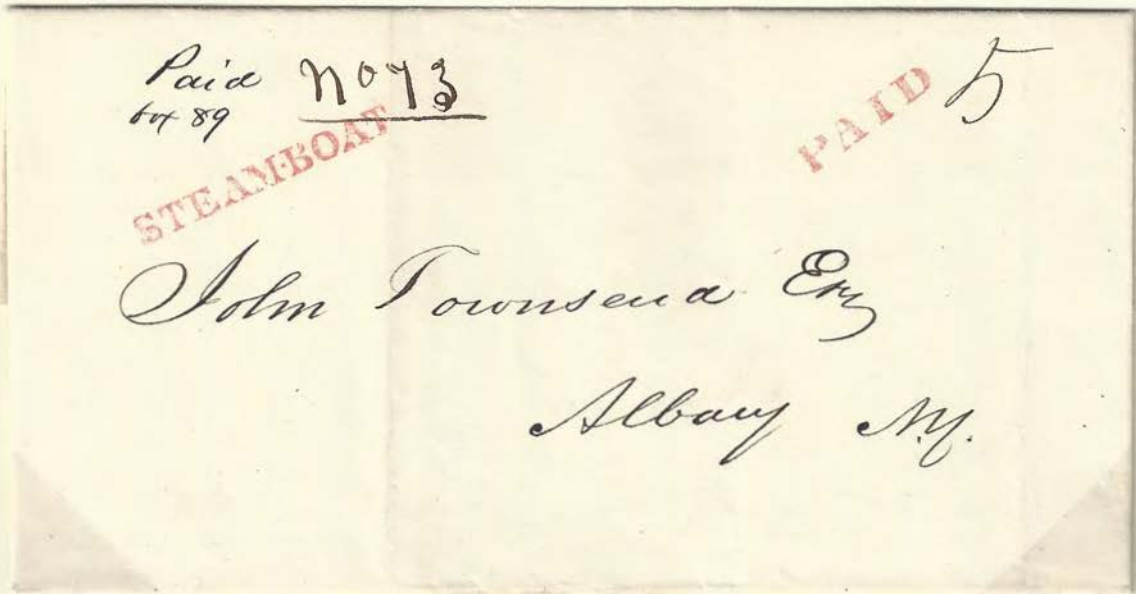 Paid No 73
box 89
STEAM·BOAT
PAID 5
John Townsend Esq
Albany N.Y.